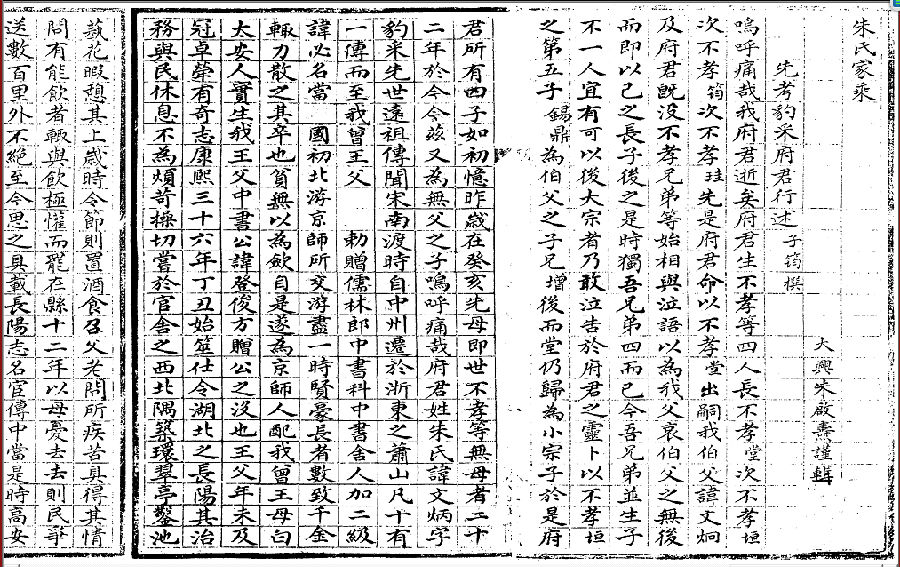 朱氏家乘
大興朱啟壽謹輯
先考豹采府君行述 子筠撰
嗚呼痛哉我府君逝矣府君生不孝等四人長不孝堂次不孝垣
次不孝筠次不孝珪先是府君命以不孝堂出嗣我伯父諱文炯
及府君既没不孝兄弟等始相與泣語以為我父哀伯父之無後
而即以己之長子後之是時獨吾兄弟四而已今吾兄弟並生子
不一人宜有可以後大宗者乃敢泣告於府君之靈卜以不孝垣
之第五子錫鼎為伯父之子兄增後而堂仍歸為小宗子於是府
君所有四子如初憶昨歲在癸亥先母即世不孝等無母者二十
二年於今今兹又為無父之子嗚呼痛哉府君姓朱氏諱文炳字
豹采先世遠祖傳聞宋南渡時自中州遷於浙東之蕭山凡十有
一傳而至我曾王父 勅贈儒林郎中書科中書舍人加二級
諱必名當 國初北游京師所交游盡一時賢豪長者數致千金
輙刀散之其卒也貧無以為歛自是遂為京師人配我曾王母白
太安人實生我王父中書公諱登俊方贈公之没也王父年未及
冠卓犖有奇志康熙三十六年丁丑始筮仕令湖北之長陽其治
務與民休息不為煩苛操切嘗於官舍之西北隅築環翠亭鑿池
蓺花暇憩其上歲時令節則置酒食召父老問所疾苦具得其情
間有能飲者輙與飲極懽而罷在縣十二年以母憂去去則民爭
送數百里外不絶至今思之具載長陽志名宦傳中當是時高安